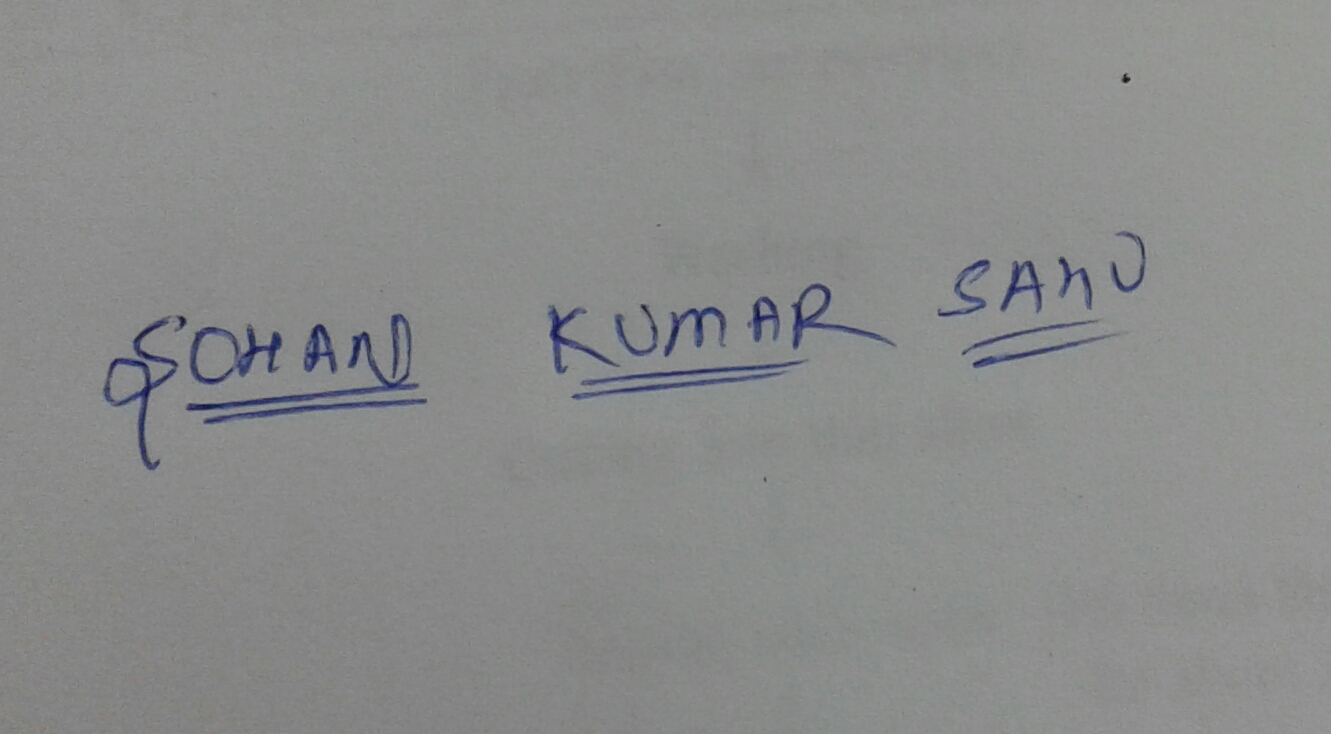 SOHAN KUMAR SAHU